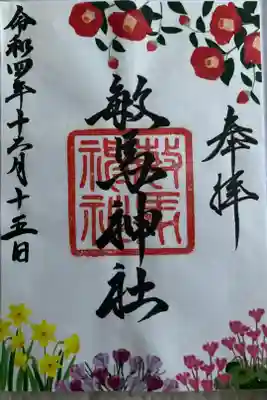 奉拝
敏馬神社
敏馬
神社
令和四年十二月十五日